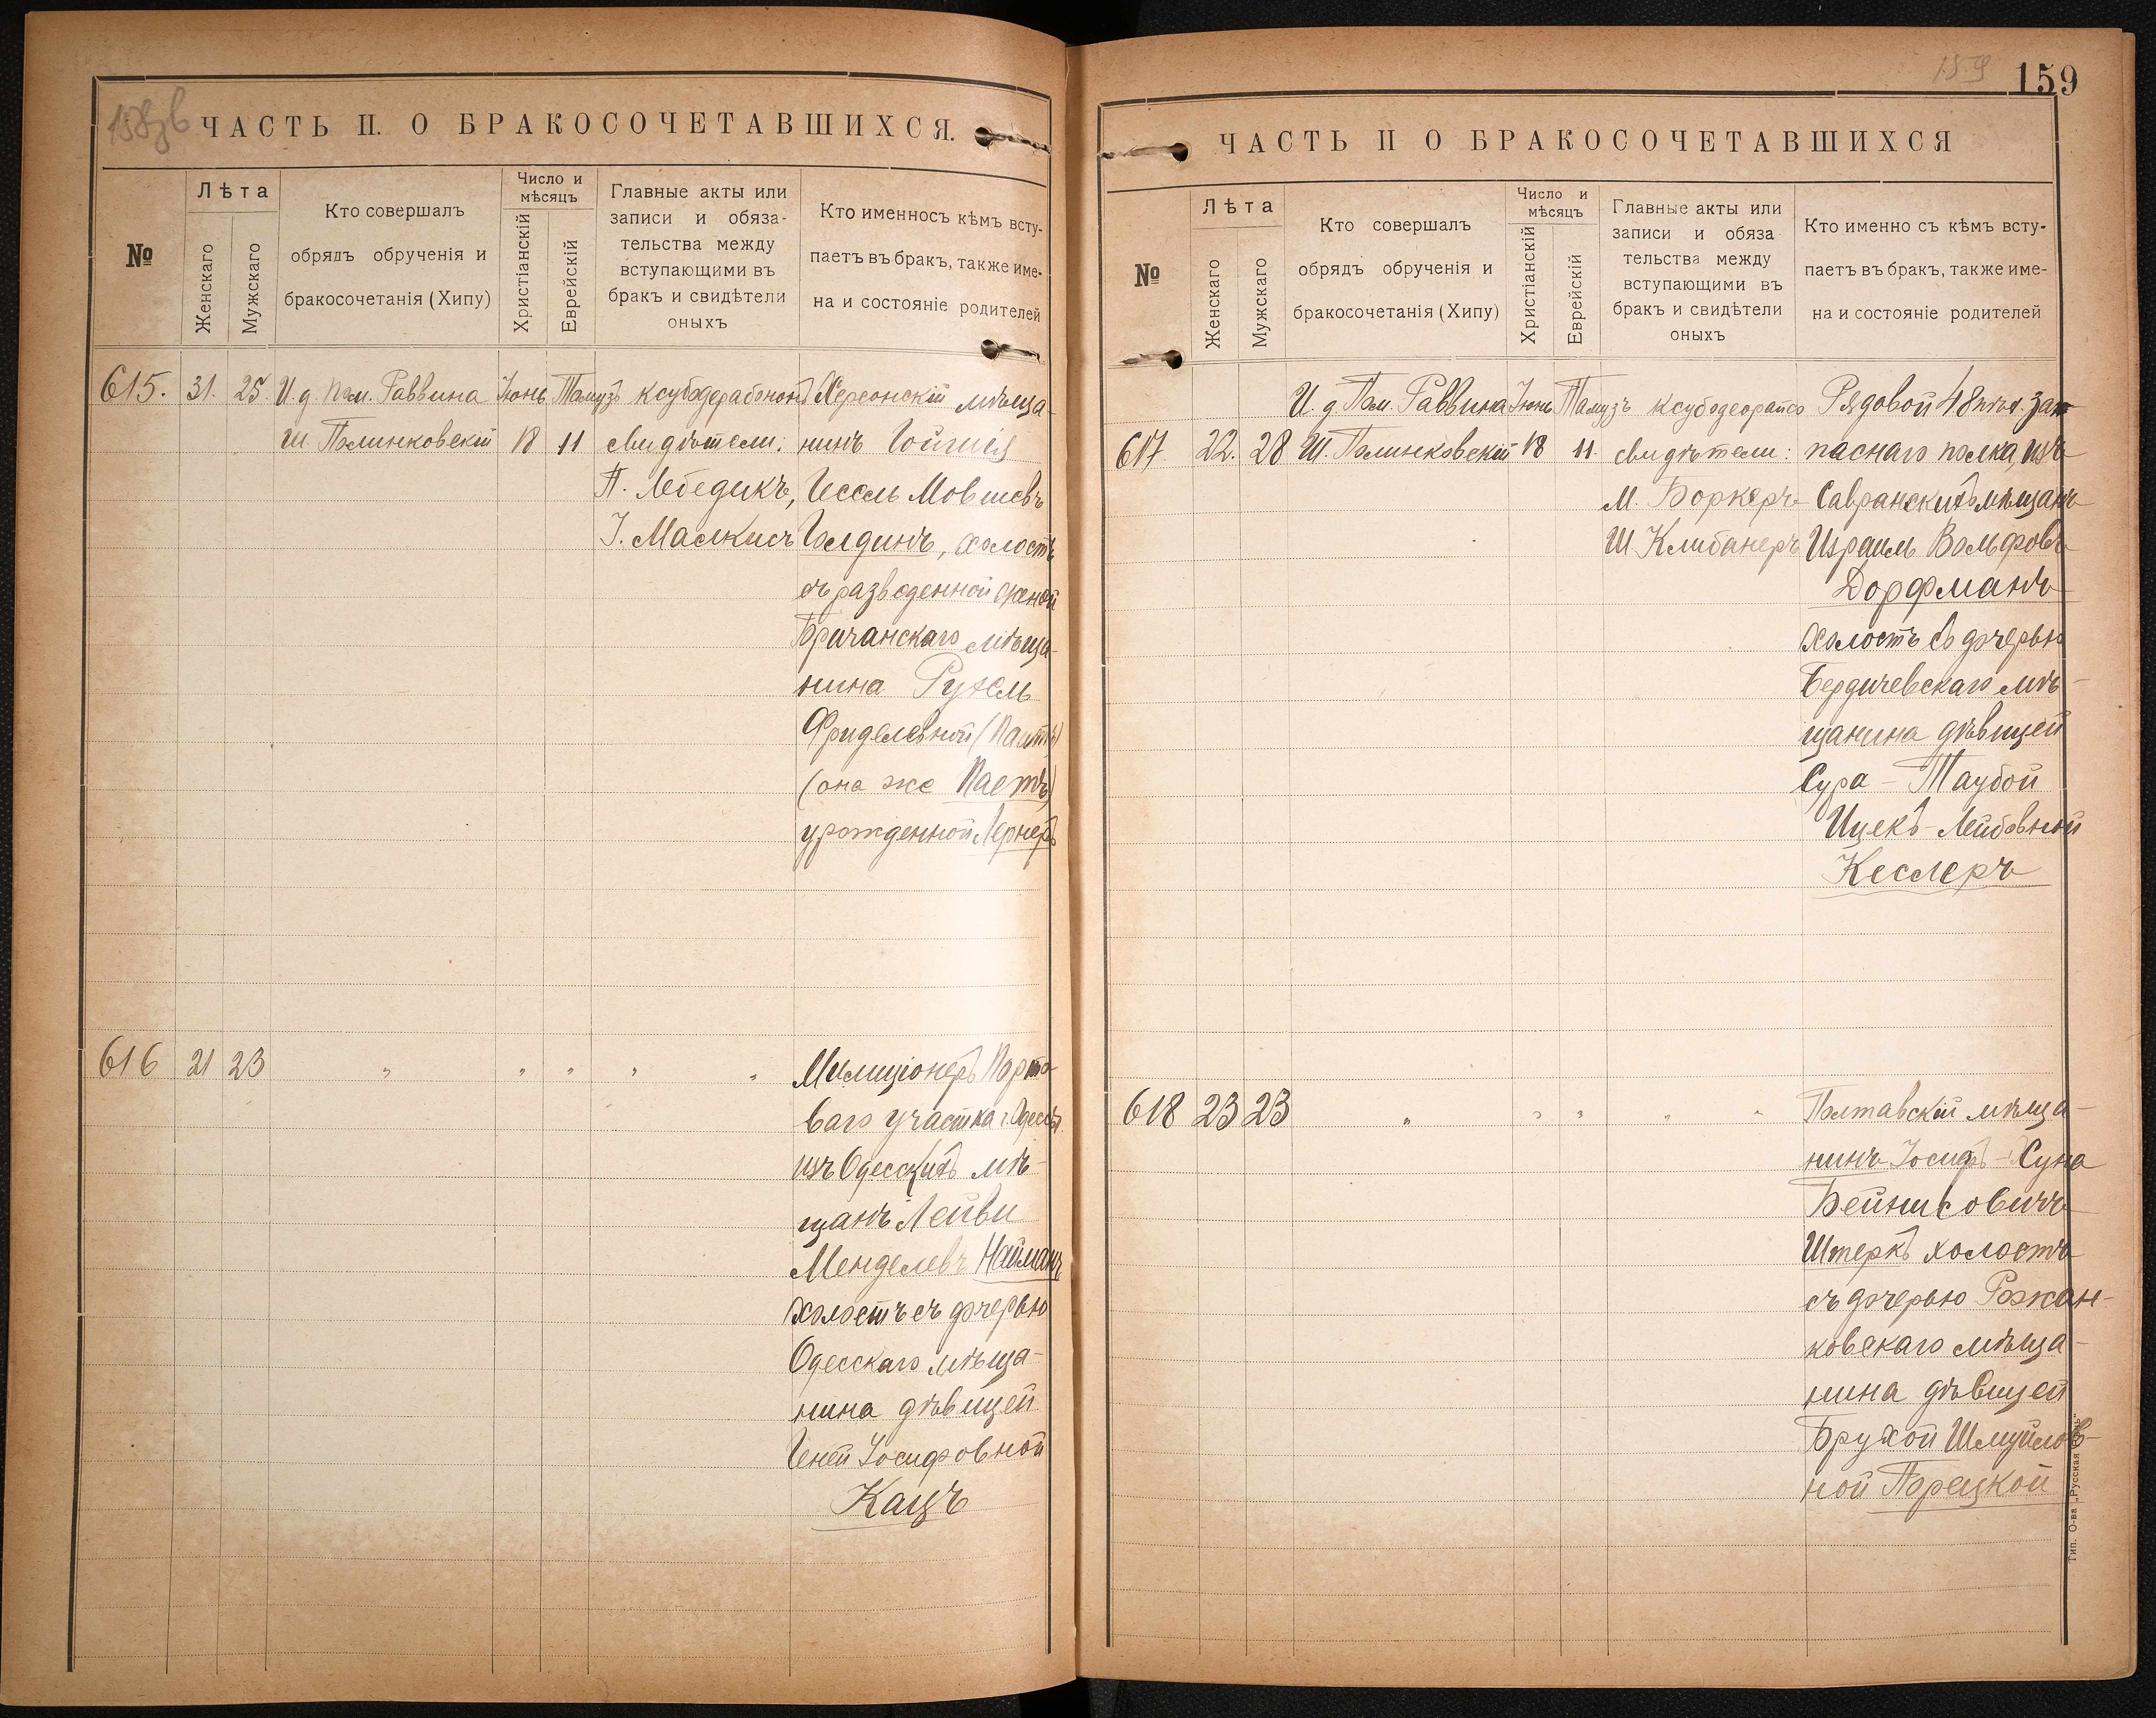 ЧАСТЬ II. О БРАКОСОЧЕТАВШИХСЯ.
№
Лѣта
Женскаго
Мужскаго
Кто совершалъ
обрядъ обрученія и
бракосочетанія (Хипу)
Число и
мѣсяцъ
Христіанскій
Еврейскій
Главные акты или
записи и обяза-
тельства между
вступающими въ
бракъ и свидѣтели
оныхъ
Кто именносъ кѣмъ всту-
паетъ въ бракъ, также име-
на и состояніе родителей
615. 31. 25.
И. д. пом. Раввина
Ш. Полинковскій
Іюнь
18
Тамузъ
11
свидѣтели:
П. Лебедикъ,
І. Малкисъ
Херсонскій мѣща-
нинъ
Іессель Мовшевъ
Голдинъ, холостъ
съ разведенной женой
Бричанскаго мѣща-
нина Рухель
Фриделевной
(она же Паетъ)
урожденной Лернеръ
616 21 23
" " " " "
Милиціонеръ Порто-
ваго участка г. Одессы
изъ Одесскихъ мѣ-
щанъ Лейви
Менделевъ Найманъ
холостъ съ дочерью
Одесскаго мѣща-
нина дѣвицей
Геней Іосифовной
Кацъ
159
159
ЧАСТЬ II О БРАКОСОЧЕТАВШИХСЯ
№
Лѣта
Женскаго
Мужскаго
Кто совершалъ
обрядъ обрученія и
бракосочетанія (Хипу)
Число и
мѣсяцъ
Христіанскій
Еврейскій
Главные акты или
записи и обяза
тельства между
вступающими въ
бракъ и свидѣтели
оныхъ
Кто именно съ кѣмъ всту-
паетъ въ бракъ, также име-
на и состояніе родителей
617. 22. 28
И. д. Пом. Раввина
Ш. Полинковскій
Іюнь
18
Тамузъ
11.
свидѣтели:
М. Боркеръ
Ш Клибанеръ
Рядовой 48 пѣх. за
паснаго полка, изъ
Савранскихъ мѣщанъ
Израиль Вольфовъ
Дорфманъ
холостъ съ дочерью
Бердичевскаго мѣ-
щанина дѣвицей
Сура-Таубой
Ицекъ-Лейбовной
Кеслеръ
618 23 23
" " " " "
Полтавскій мѣща-
нинъ Іосифъ-Суна
Бейнисовичъ
Штеркъ холостъ
съ дочерью Рожан-
ковскаго мѣща-
нина дѣвицей
Брухой Шмуйлов-
ной Порецкой
Тип. О-ва „Русская